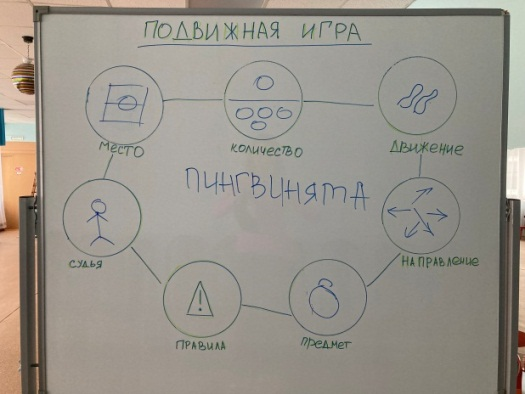 ПОДВИЖНАЯ ИГРА
МЕСТО
КОЛИЧЕСТВО
ДВИЖЕНИЕ
ПИНГВИНЯТА
СУДЬЯ
НАПРАВЛЕНИЕ
ПРАВИЛА
ПРЕДМЕТ